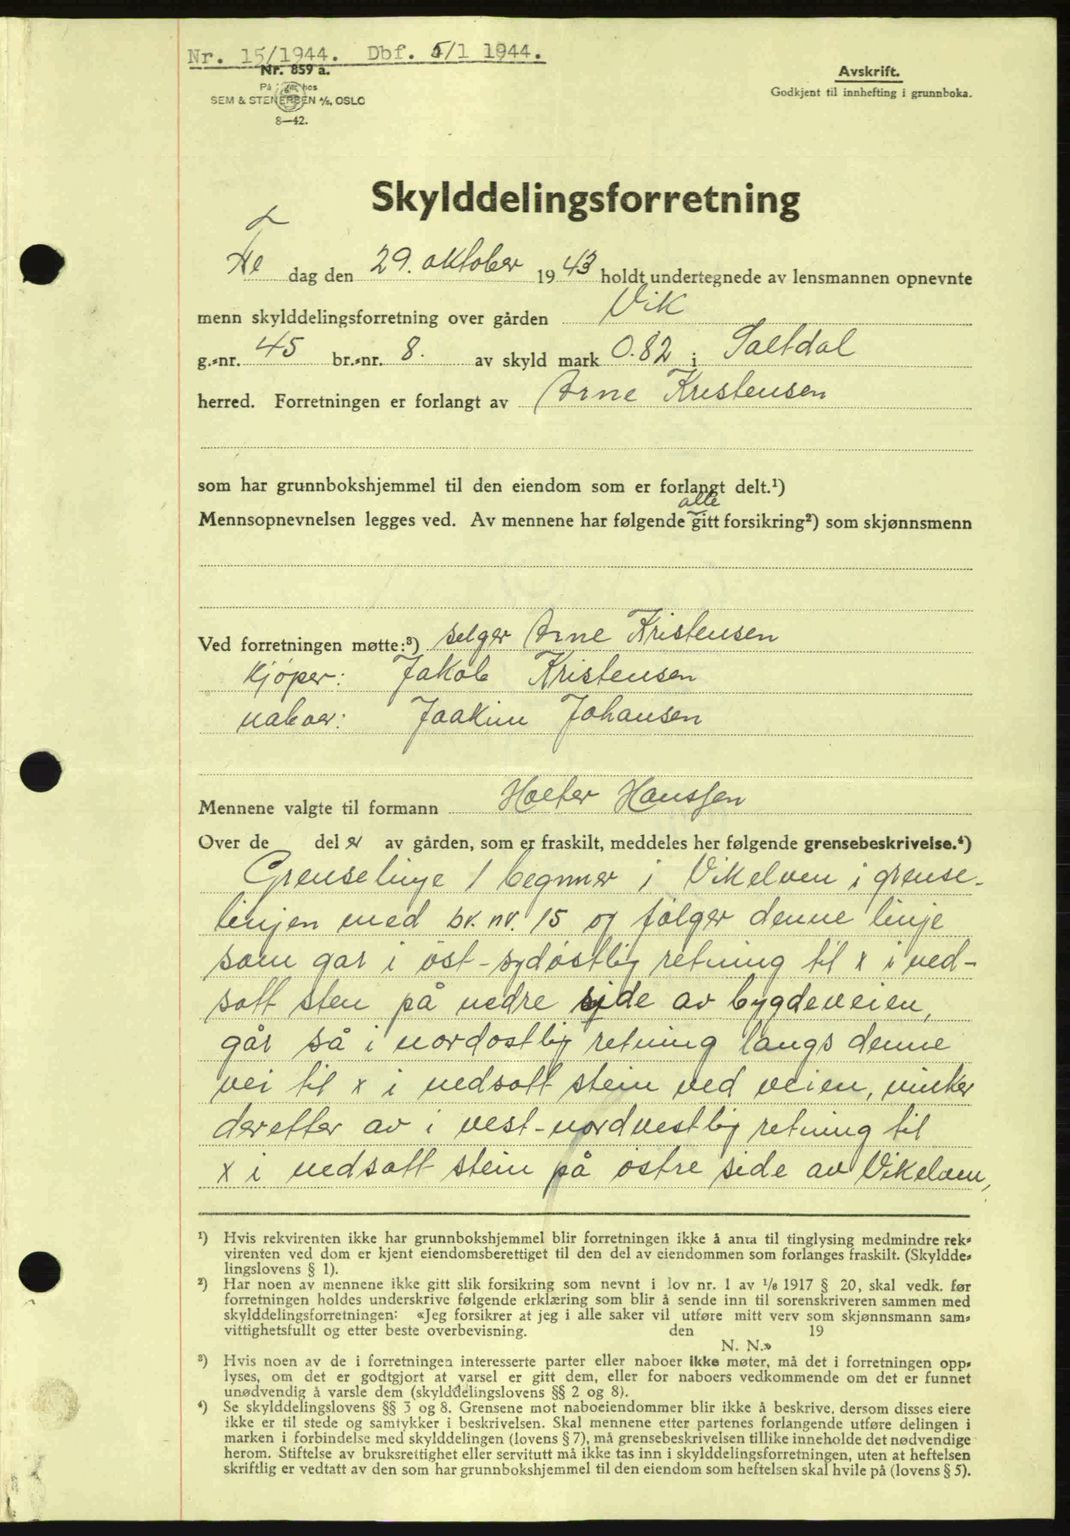 Nr. 15/1944. Dbf. 5/1 1944.
Nr. 859 a.
SEM & STENERSEN A/S, OSLO
8—42.
Avskrift.
Godkjent til innhefting i grunnboka.
Skylddelingsforretning
Fre dag den 29. oktober 1943 holdt undertegnede av lensmannen opnevnte
menn skylddelingsforretning over gården Vik
g.-nr. 45 br.-nr. 8. av skyld mark 0.82 i Saltdal
herred. Forretningen er forlangt av Arne Kristensen
som har grunnbokshjemmel til den eiendom som er forlangt delt.¹)
alle
Mennsopnevnelsen legges ved. Av mennene har følgende gitt forsikring²) som skjønnsmenn
Ved forretningen møtte:³) selger Arne Kristensen
kjøper: Jakob Kristensen
naboer: Joakim Johansen
Mennene valgte til formann Hanssen
Over de del er av gården, som er fraskilt, meddeles her følgende grensebeskrivelse.⁴)
Grenselinje 1 begynner i Vikelven i grense-
linjen med br. nr. 15 og følger denne linje
som går i øst-sydøstlig retning til x i ned-
satt sten på nedre side av bygdeveien,
går så i nordostlig retning langs denne
vei til x i nedsatt stein ved veien, vinker
deretter av i vest-nordvestlig retning til
x i nedsatt stein på østre side av Vikelven,
¹) Hvis rekvirenten ikke har grunnbokshjemmel blir forretningen ikke å anta til tinglysing medmindre rek-
virenten ved dom er kjent eiendomsberettiget til den del av eiendommen som forlanges fraskilt. (Skyldde-
lingslovens § 1).
²) Har noen av mennene ikke gitt slik forsikring som nevnt i lov nr. 1 av 1/8 1917 § 20, skal vedk. før
forretningen holdes underskrive følgende erklæring som blir å sende inn til sorenskriveren sammen med
skylddelingsforretningen: «Jeg forsikrer at jeg i alle saker vil utføre mitt verv som skjønnsmann sam-
vittighetsfullt og etter beste overbevisning. den 19
N. N.»
³) Hvis noen av de i forretningen interesserte parter eller naboer ikke møter, må det i forretningen opp-
lyses, om det er godtgjort at varsel er gitt dem, eller for naboers vedkommende om det er funnet
unødvendig å varsle dem (skylddelingslovens §§ 2 og 8).
⁴) Se skylddelingslovens §§ 3 og 8. Grensene mot naboeiendommer blir ikke å beskrive, dersom disses eiere
ikke er til stede og samtykker i beskrivelsen. Skal mennene etter partenes forlangende utføre delingen i
marken i forbindelse med skylddelingen (lovens § 7), må grensebeskrivelsen tillike inneholde det nødvendige
herom. Stiftelse av bruksrettighet eller servitutt må ikke tas inn i skylddelingsforretningen, uten at heftelsen
skriftlig er vedtatt av den som har grunnbokshjemmel til den eiendom som heftelsen skal hvile på (lovens § 5).